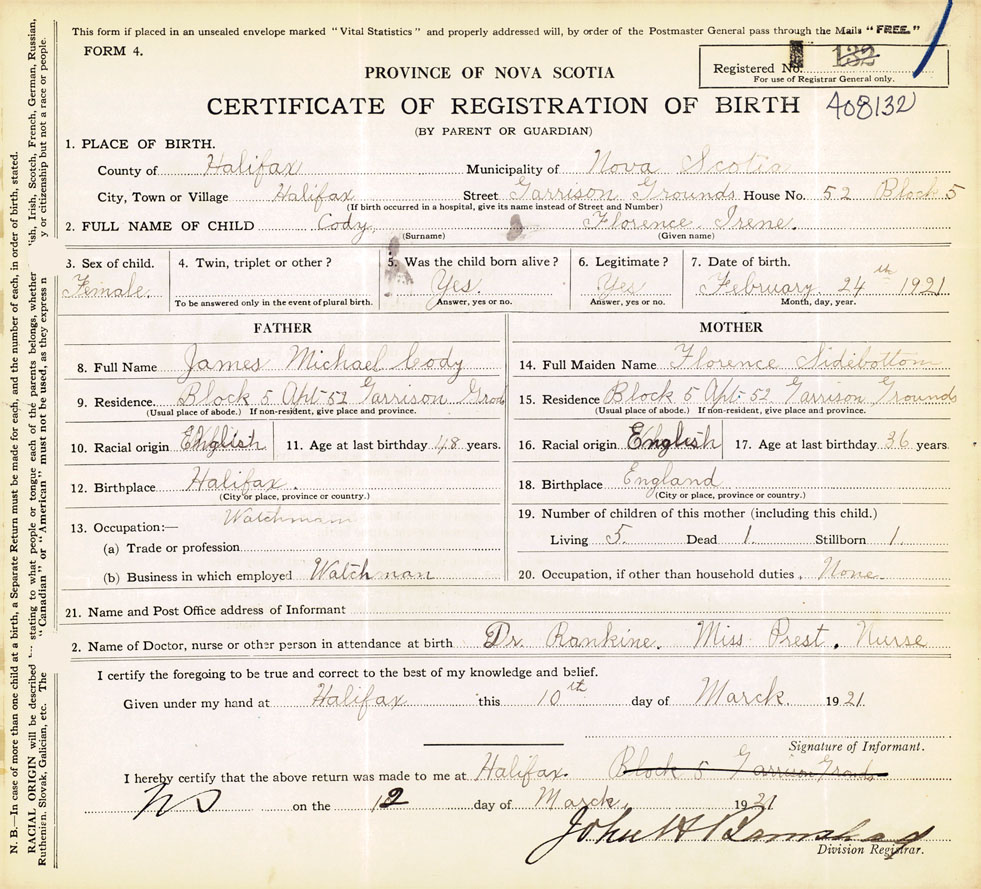 This form if placed in an unsealed envelope marked "Vital Statistics" and properly addressed will, by order of the Postmaster General pass through the Mails "FREE."
FORM 4.
Registered No. 132
For use of Registrar General only.
PROVINCE OF NOVA SCOTIA
CERTIFICATE OF REGISTRATION OF BIRTH 408132
(BY PARENT OR GUARDIAN)
1. PLACE OF BIRTH.
County of Halifax Municipality of Nova Scotia
City, Town or Village Halifax Street Garrison Grounds House No. 52 Block 5
(If birth occurred in a hospital, give its name instead of Street and Number)
2. FULL NAME OF CHILD Cody, Florence Irene.
(Surname) (Given name)
3. Sex of child. 4. Twin, triplet or other? 5. Was the child born alive? 6. Legitimate? 7. Date of birth.
Female. Yes. Yes February 24th 1921
To be answered only in the event of plural birth. Answer, yes or no. Answer, yes or no. Month, day, year.
FATHER
8. Full Name James Michael Cody
9. Residence. Block 5 Apt-52 Garrison Grou
(Usual place of abode.) If non-resident, give place and province.
10. Racial origin English 11. Age at last birthday 48 years.
12. Birthplace Halifax.
(City or place, province or country.)
13. Occupation:— Watchman
(a) Trade or profession
(b) Business in which employed Watchman
MOTHER
14. Full Maiden Name Florence Sidebottom
15. Residence Block 5 Apt-52 Garrison Grounds
(Usual place of abode.) If non-resident, give place and province.
16. Racial origin English 17. Age at last birthday 36 years
18. Birthplace England
(City or place, province or country.)
19. Number of children of this mother (including this child.)
Living 5. Dead 1. Stillborn 1.
20. Occupation, if other than household duties, None.
21. Name and Post Office address of Informant
2. Name of Doctor, nurse or other person in attendance at birth Dr. Rankine. Miss Prest, Nurse
I certify the foregoing to be true and correct to the best of my knowledge and belief.
Given under my hand at Halifax this 10th day of March. 1921.
Signature of Informant.
I hereby certify that the above return was made to me at Halifax. Block 5 Garrison Grounds
NS on the 12 day of March, 1921
John H
Division Registrar.
N. B.—In case of more than one child at a birth, a Separate Return must be made for each, and the number of each, in order of birth, stated.
RACIAL ORIGIN will be described stating to what people or tongue each of the parents belongs, whether ish, Irish, Scotch, French, German, Russian,
Ruthenian, Slovak, Galician, etc. The "Canadian" or "American" must not be used, as they express n y or citizenship but not a race or people.